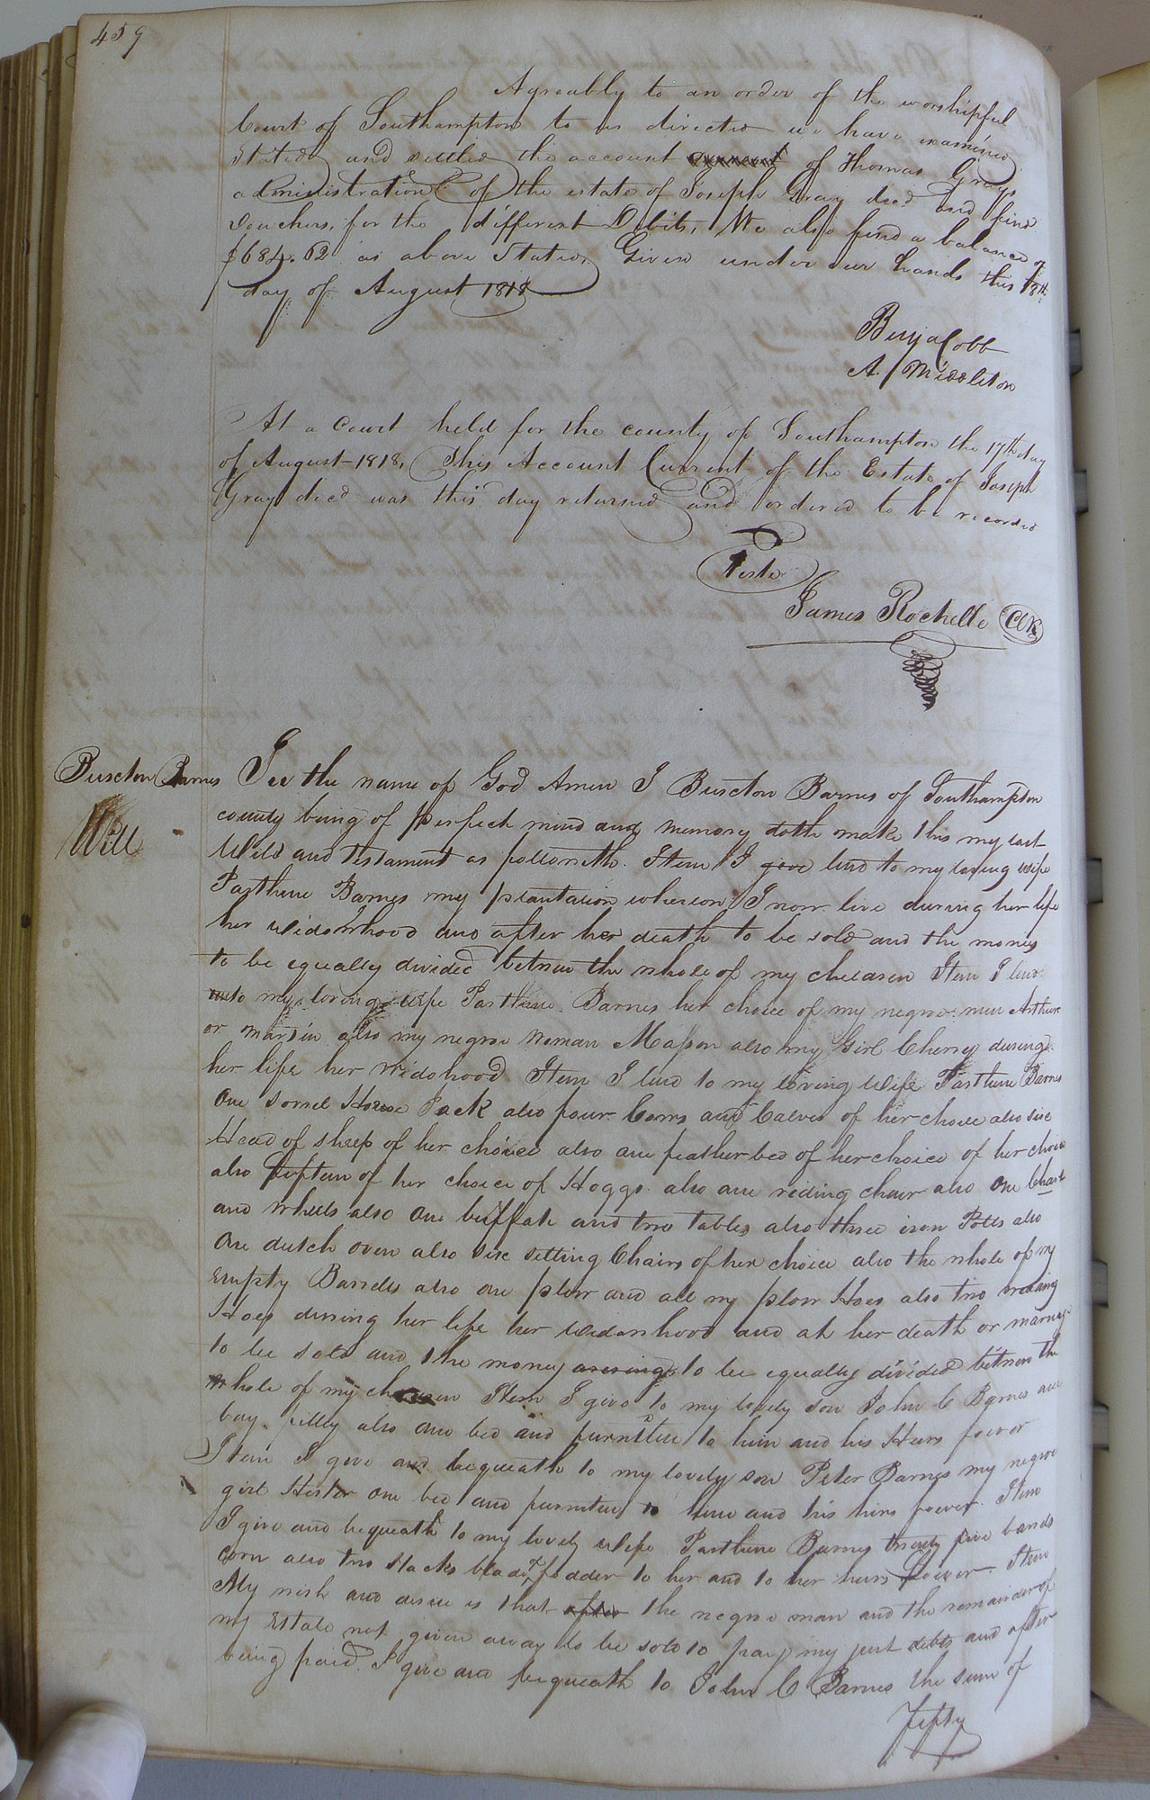 459
Agreeably to an order of the worshipful
Court of Southampton to us directed we have examined
Stated and settled the account of Thomas Grays
administration of the estate of Joseph Gray decd and find
Vouchers for the different Debits, We also find a balance of
$684.62 as above Stated Given under our hands this 18th
day of August 1818
Benja Cobb
A. Middleton
At a Court held for the county of Southampton the 17th day
of August 1818, This Account Current of the Estate of Joseph
Gray decd was this day returned and ordered to be recorded
Teste
James Rochelle Clk
Burcton Barnes
Will
In the name of God Amen I Burcton Barnes of Southampton
county being of perfect mind and memory doth make this my last
Will and Testament as followeth. Item I give lend to my loving wife
Parthene Barnes my plantaion whereon I now live during her life
her widowhood and after her death to be sold and the money
to be equally divided between the whole of my children Item I lend
unto my loving wife Parthene Barnes her choice of my negroe men Arthur
or Martin also my negroe woman Mason also my Girl Cherry during
her life her widohood Item I lend to my loving Wife Parthene Barnes
One sorrel Horse Jack also four Cows and Calves of her choice also six
Head of sheep of her choice also one featherbed of her choice of her choice
also fiften of her choice of Hoggs also one riding chair also One Chart
and wheels also One buffatt and two tables also three iron Potts also
One dutch oven also six setting Chairs of her choice also the whole of my
Empty Barrels also one plow and all my plow Hoes also two weeding
Hoes during her life her widowhood and at her death or marriage
to be sold and the money arising to be equally divided between the
whole of my children Item I give to my lovely son John C Barnes one
bay filley also one bed and furniture to him and his Heirs forever
Item I give and bequeath to my lovely son Peter Barnes my negroe
girl Hester one bed and furniture to him and his heirs forever. Item
I give and bequeath to my lovely wife Parthene Barnes twenty five barrels
corn also two stacks blade fodder to her and to her heirs forever. Item
My wish and desire is that after the negroe man and the remainder of
my Estate not given away to be sold to pay my just debts and after
being paid I give and bequeath to John C Barnes the sum of
Fifty